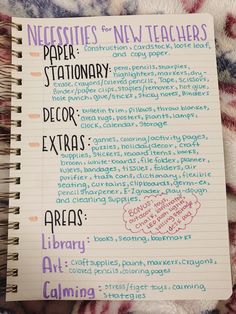 NECESSITIES for NEW TEACHERS
PAPER: Construction, cardstock, loose leaf,
and copy paper.
STATIONARY: pens, pencils, sharpies,
highlighters, markers, dry-
erase, crayons/colored pencils, Tape, scissors,
Binder/paper clips, staples/remover, hot glue,
hole punch, glue/sticks, sticky notes, Binders
DECOR: bulletin trim, pillows, throw blanket,
area rugs, posters, plants, lamps,
clock, calendar, storage
EXTRAS: games, coloring/activity pages,
puzzles, holiday decor, craft
supplies, stickers, reward items, books,
broom, white-boards, file folder, planner,
rulers, bandages, tissues, folders, air
purifier, trash cans, dictionary, flexible
seating, curtains, clipboards, germ-ex,
pencil sharpener, E-Z grader, play dough
and cleaning supplies.
BONUS:
outdoor toys,
AREAS:
Library: books, seating, bookmarks
Art: craft supplies, paint, markers, crayons,
colored pencils, coloring pages
Calming: stress/figet toys, calming
strategies